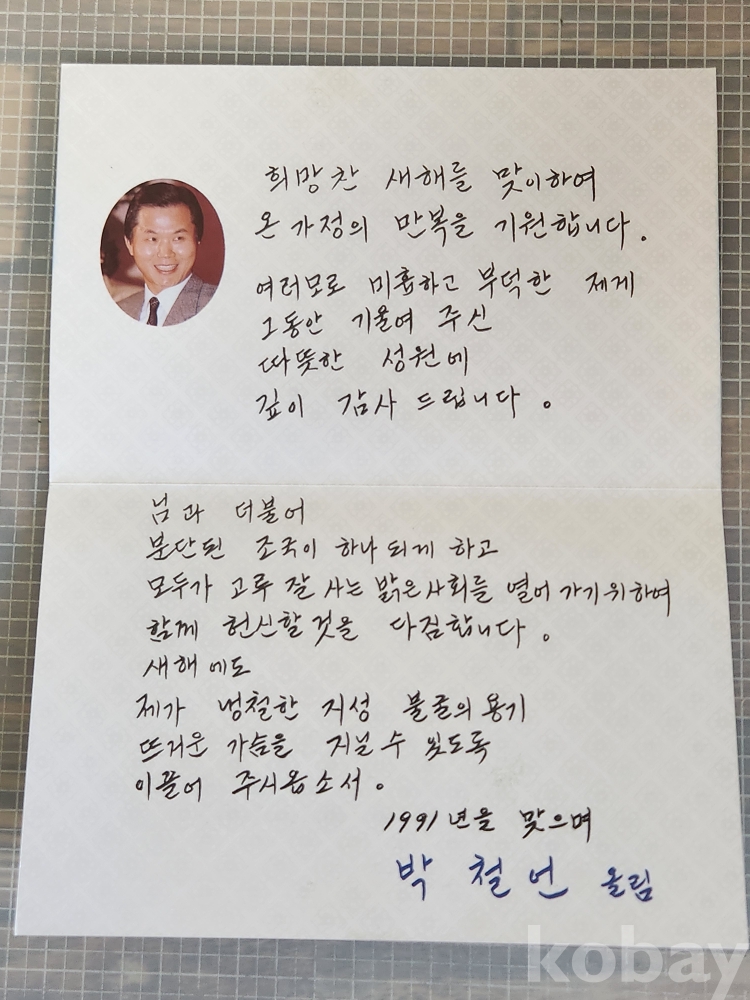 희망찬 새해를 맞이하여
온 가정의 만복을 기원합니다.
여러모로 미흡하고 부덕한 제게
그동안 기울여 주신
따뜻한 성원에
깊이 감사 드립니다.
님과 더불어
분단된 조국이 하나 되게 하고
모두가 고루 잘 사는 밝은 사회를 열어 가기 위하여
함께 헌신할 것을 다짐합니다.
새해에도
제가 냉철한 지성 불굴의 용기
뜨거운 가슴을 지닐 수 있도록
이끌어 주시옵소서.
1991년을 맞으며
박철언 올림
kobay